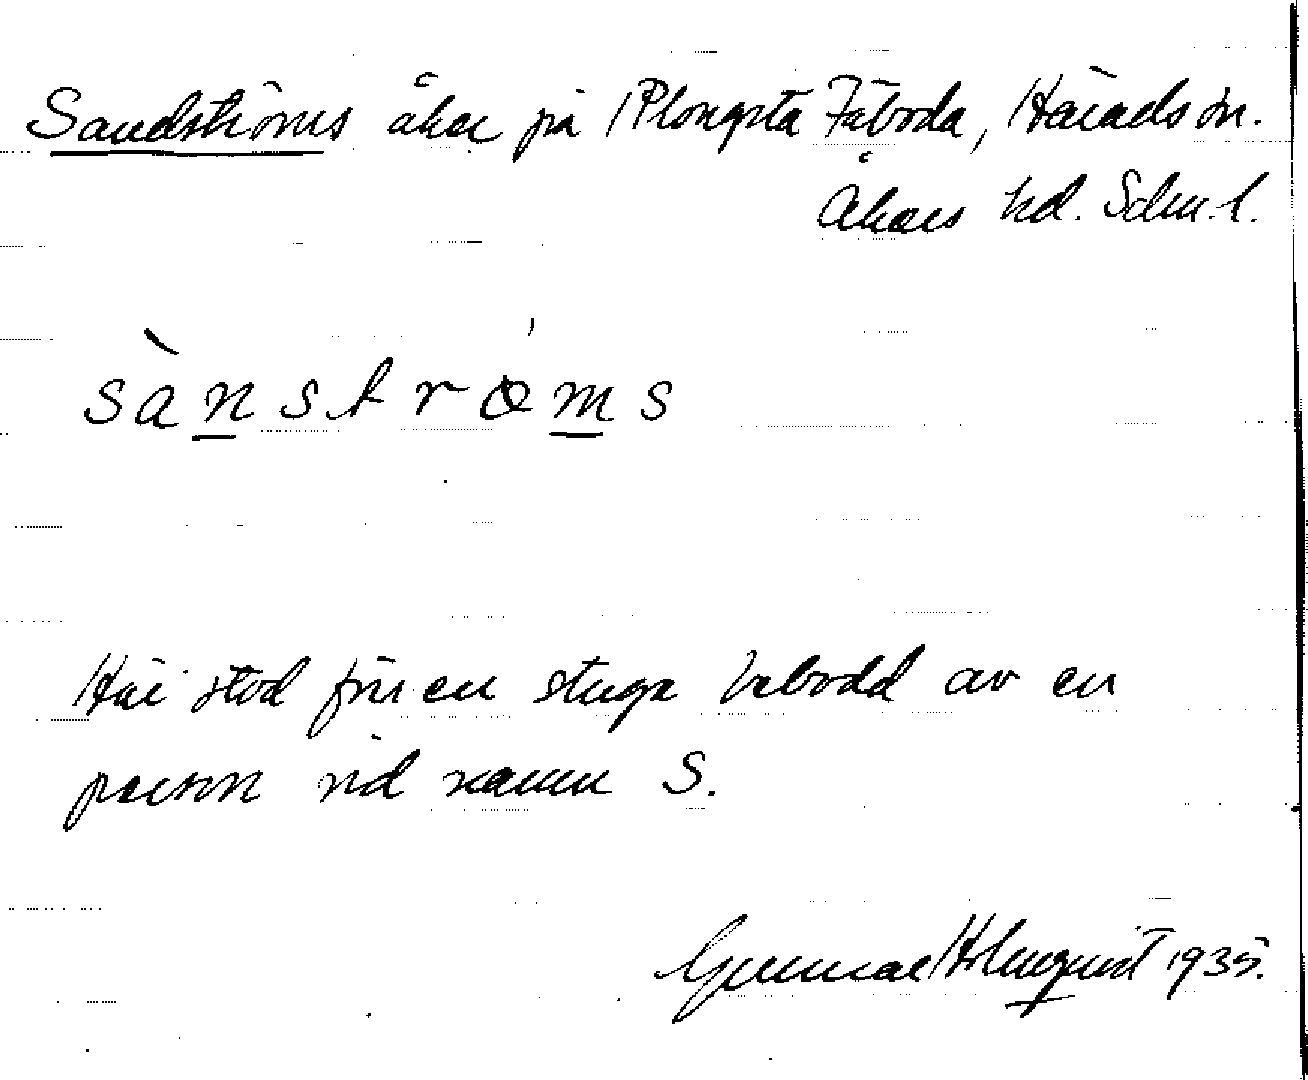 Sandströms åker på Plongsta Fäboda, Härads sn.
Åkers hd. Sdm. l.
sànstrøms
Här stod förr en stuga bebodd av en
person vid namn S.
Gunnar Holmquist 1935.